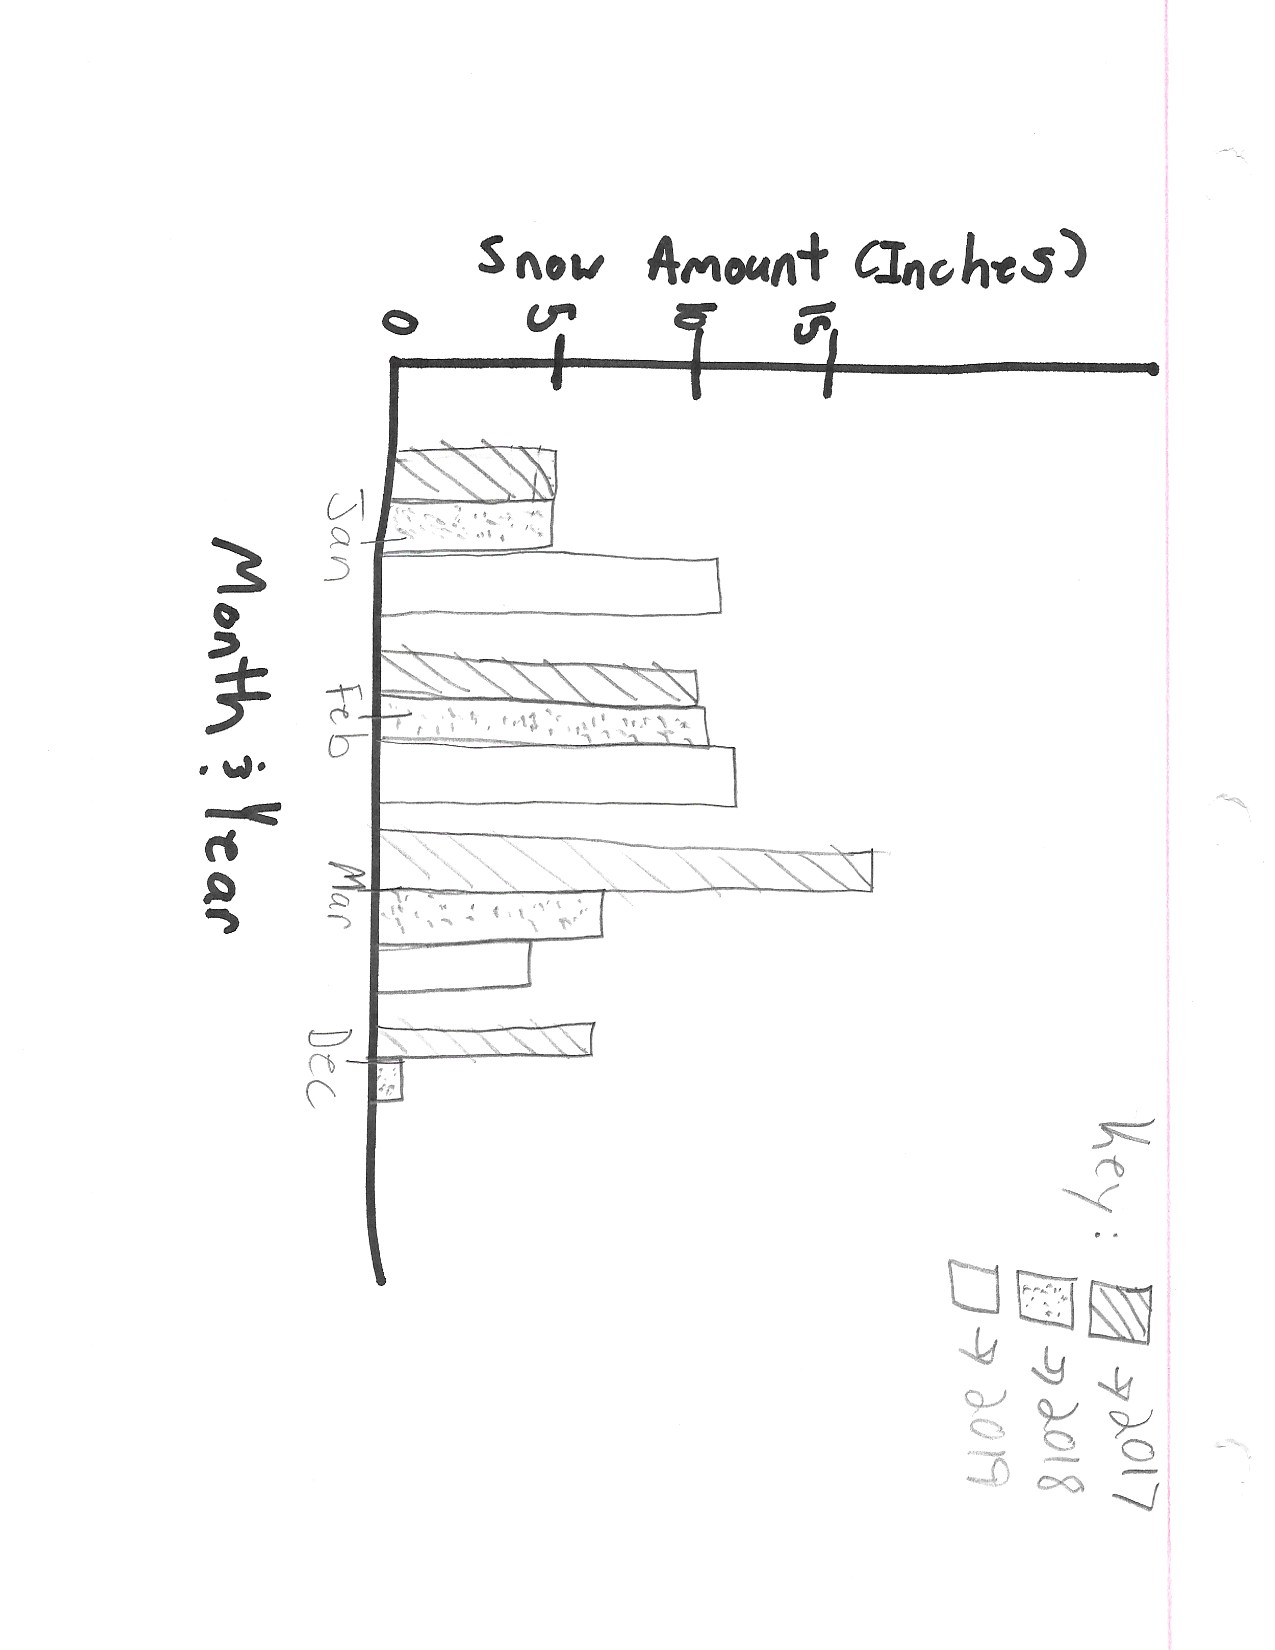 Key: → 2017
→ 2018
→ 2019
Snow Amount (Inches)
15
10
5
0
Jan Feb Mar Dec
Month & Year